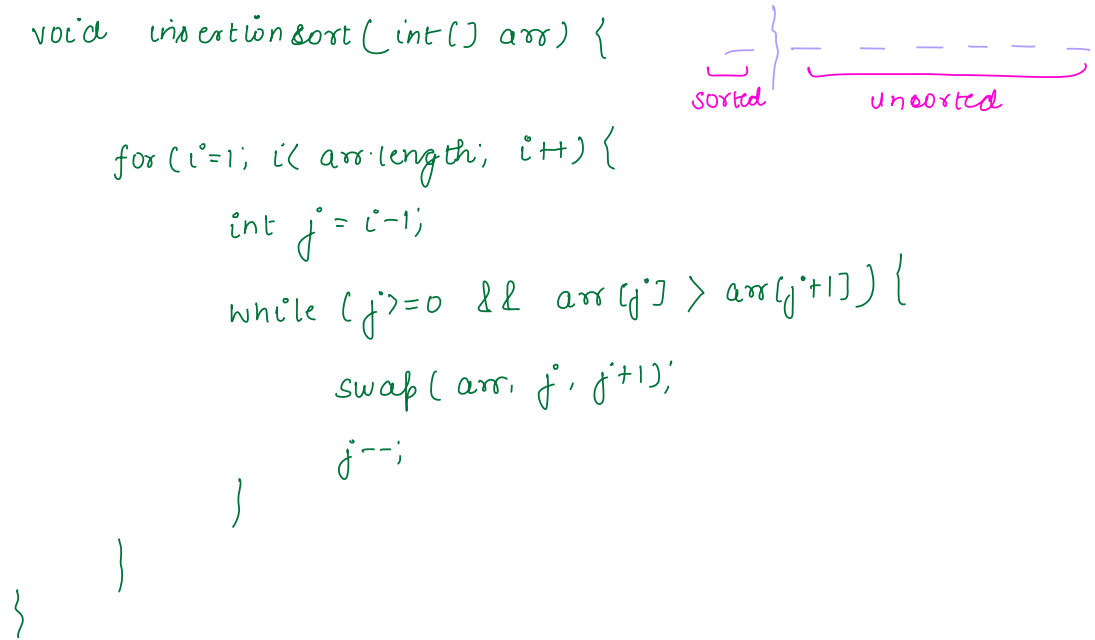 void insertionsort(int[] arr) {
sorted unsorted
for(i=1; i< arr.length; i++) {
int j = i-1;
while (j>=0 && arr[j] > arr[j+1]) {
swap(arr, j, j+1);
j--;
}
}
}